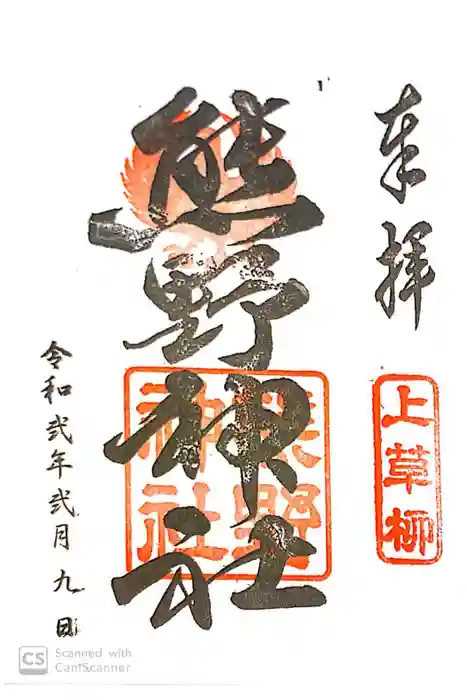 奉拝
上草柳
熊野神社
熊野
神社
令和弐年弐月九日
CS Scanned with
CamScanner